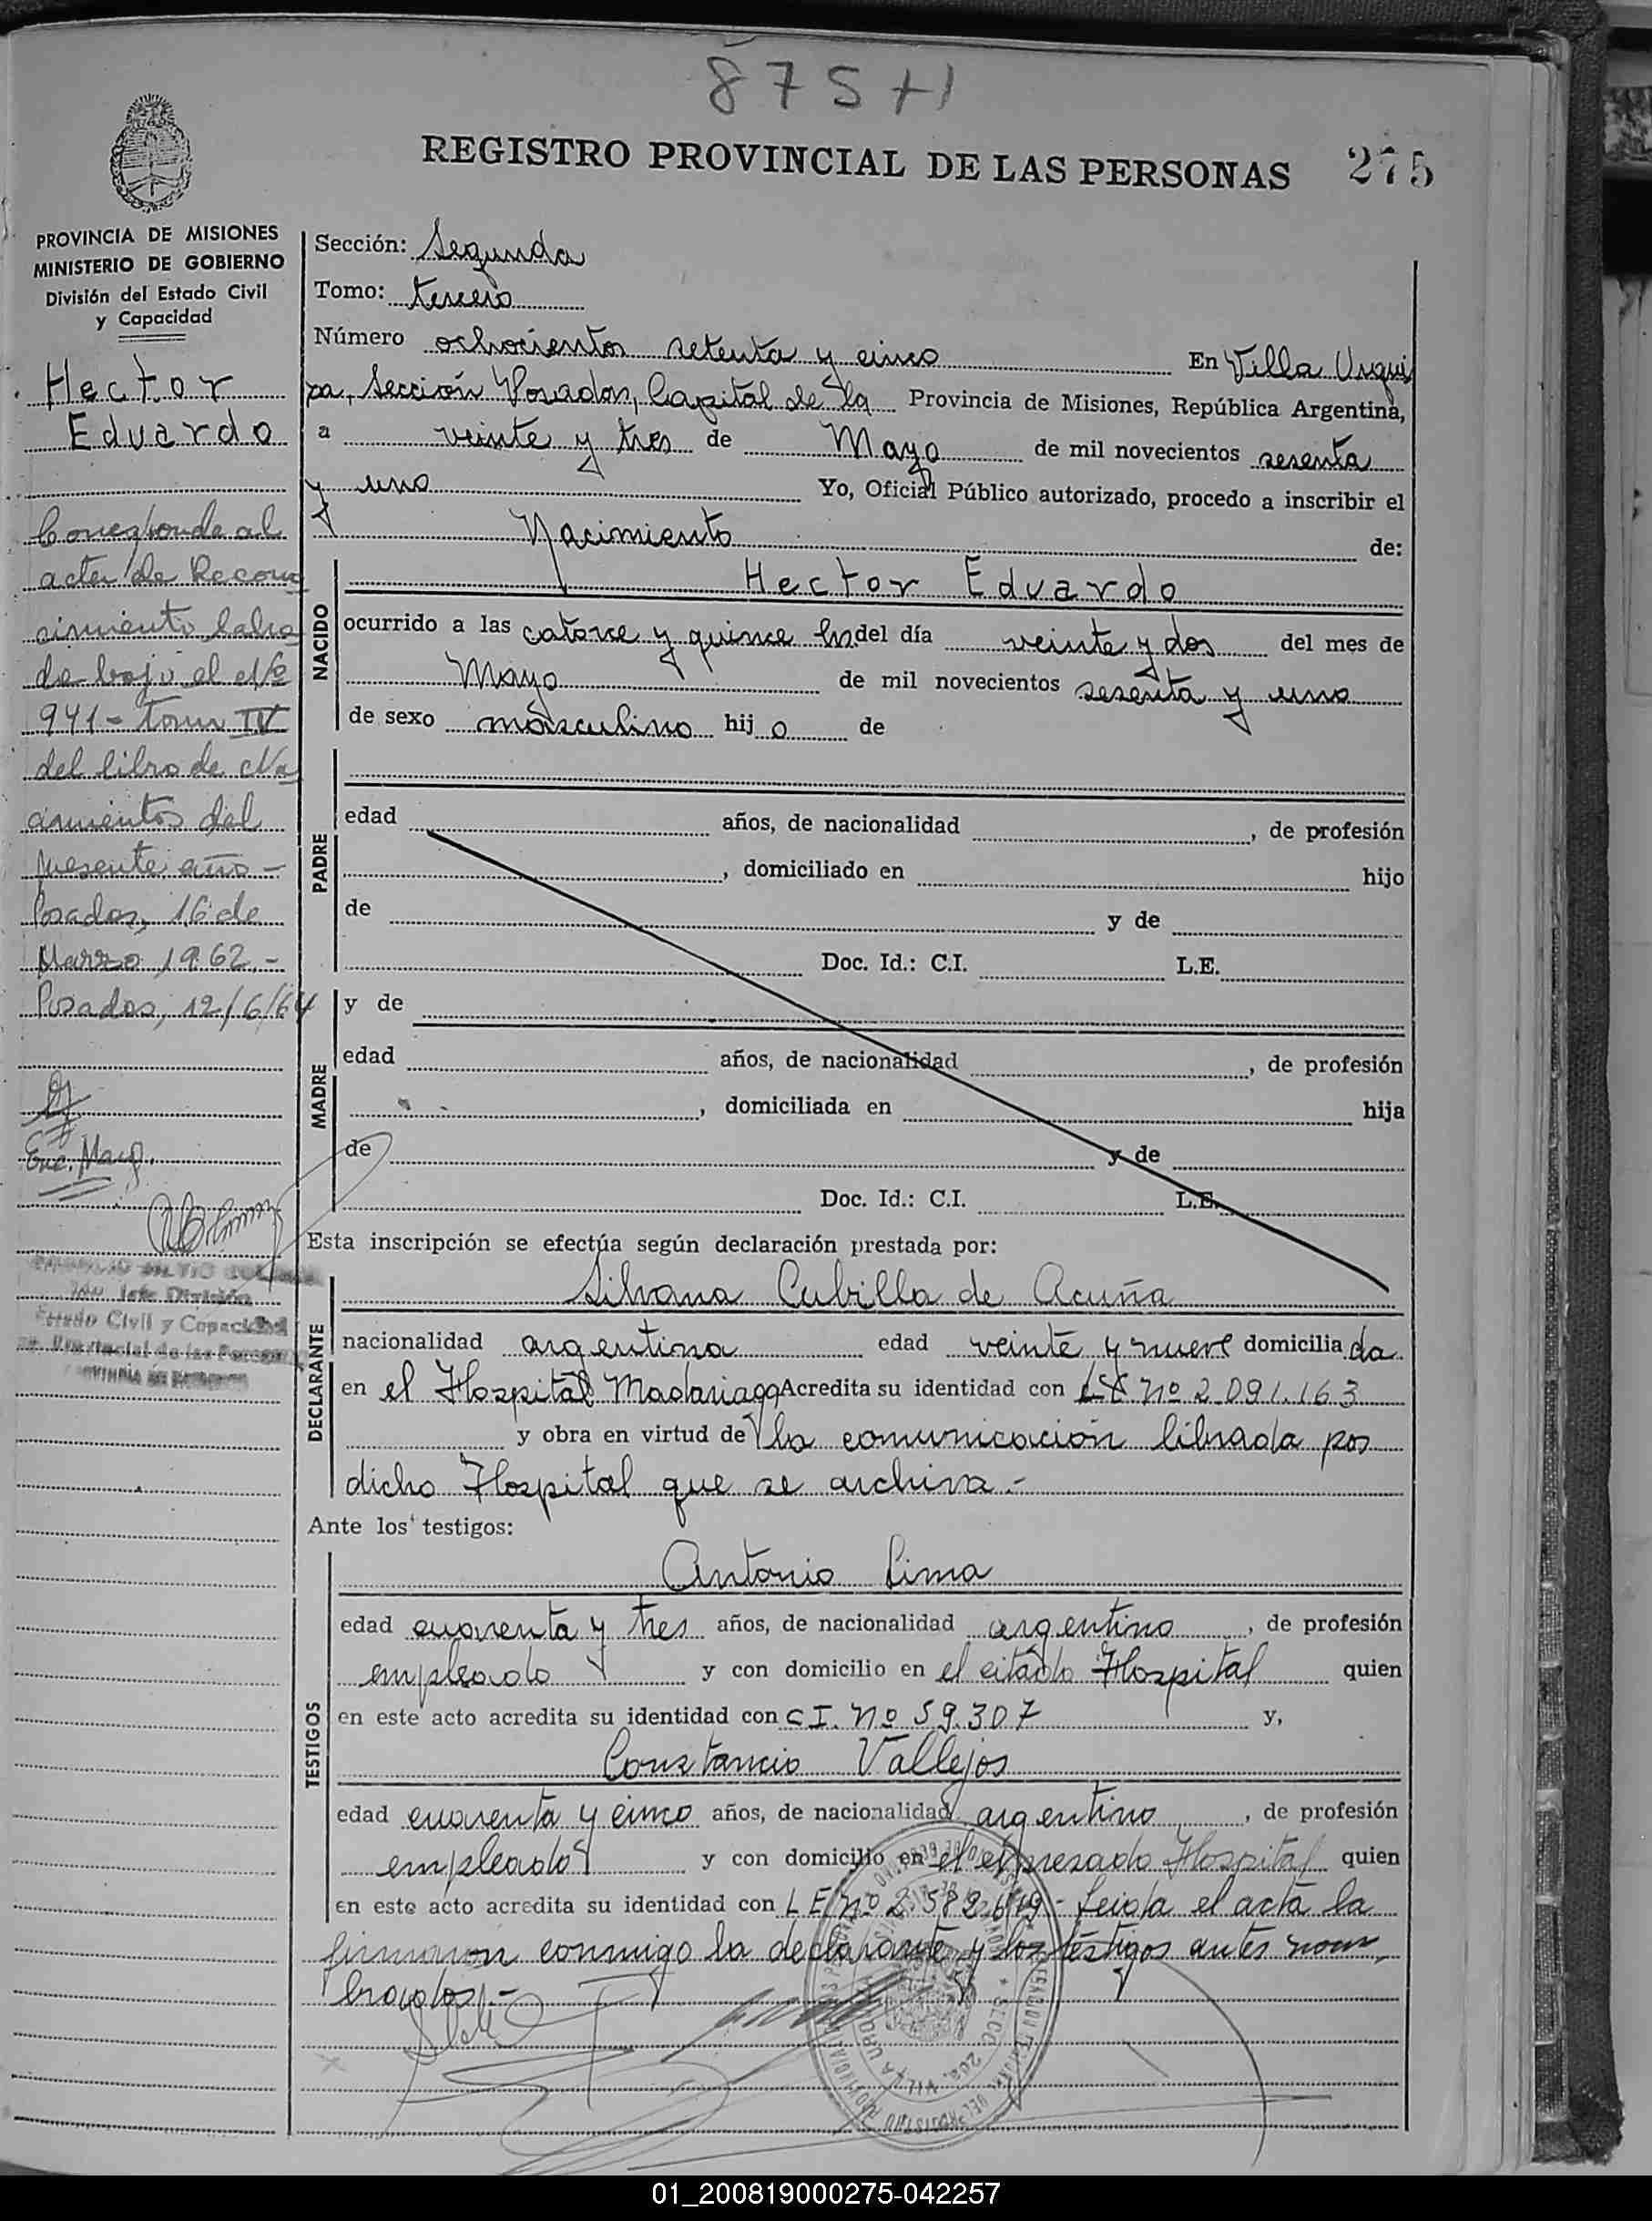 875 +1
REGISTRO PROVINCIAL DE LAS PERSONAS 275
PROVINCIA DE MISIONES
MINISTERIO DE GOBIERNO
División del Estado Civil
y Capacidad
Hector
Eduardo
Corresponde al
acta de Recono
cimiento labra
da bajo el Nº
941 - Tomo IV
del libro de Na
cimientos del
presente año -
Posadas, 16 de
Marzo 1962.-
Posadas, 12/6/64
Enc. Marg.
2do Jefe División
Estado Civil y Capacidad
Sección: Segunda
Tomo: tercero
Número ochocientos setenta y cinco En Villa Urqui
za, Sección Posadas, Capital de la Provincia de Misiones, República Argentina,
a veinte y tres de Mayo de mil novecientos sesenta
y uno Yo, Oficial Público autorizado, procedo a inscribir el
Nacimiento de:
NACIDO
Hector Eduardo
ocurrido a las catorce y quince hs. del día veinte y dos del mes de
Mayo de mil novecientos sesenta y uno
de sexo masculino hijo de
PADRE
edad años, de nacionalidad , de profesión
, domiciliado en hijo
de y de
Doc. Id.: C.I. L.E.
MADRE
y de
edad años, de nacionalidad , de profesión
, domiciliada en hija
de y de
Doc. Id.: C.I. L.E.
Esta inscripción se efectúa según declaración prestada por:
DECLARANTE
Silvana Cubilla de Acuña
nacionalidad argentina edad veinte y nueve domiciliada
en el Hospital Madariaga Acredita su identidad con nº 2.091.163
y obra en virtud de la comunicación librada por
dicho Hospital que se archiva.-
Ante los testigos:
TESTIGOS
Antonio Lima
edad cuarenta y tres años, de nacionalidad argentino , de profesión
empleado y con domicilio en el citado Hospital quien
en este acto acredita su identidad con C I. nº 59.307 y,
Constancio Vallejos
edad cuarenta y cinco años, de nacionalidad argentino , de profesión
empleado y con domicilio en el expresado Hospital quien
en este acto acredita su identidad con L E. nº 2.582.619 - Leida el acta la
firmaron conmigo la declarante y los testigos antes nom
brados.-
01_200819000275-042257